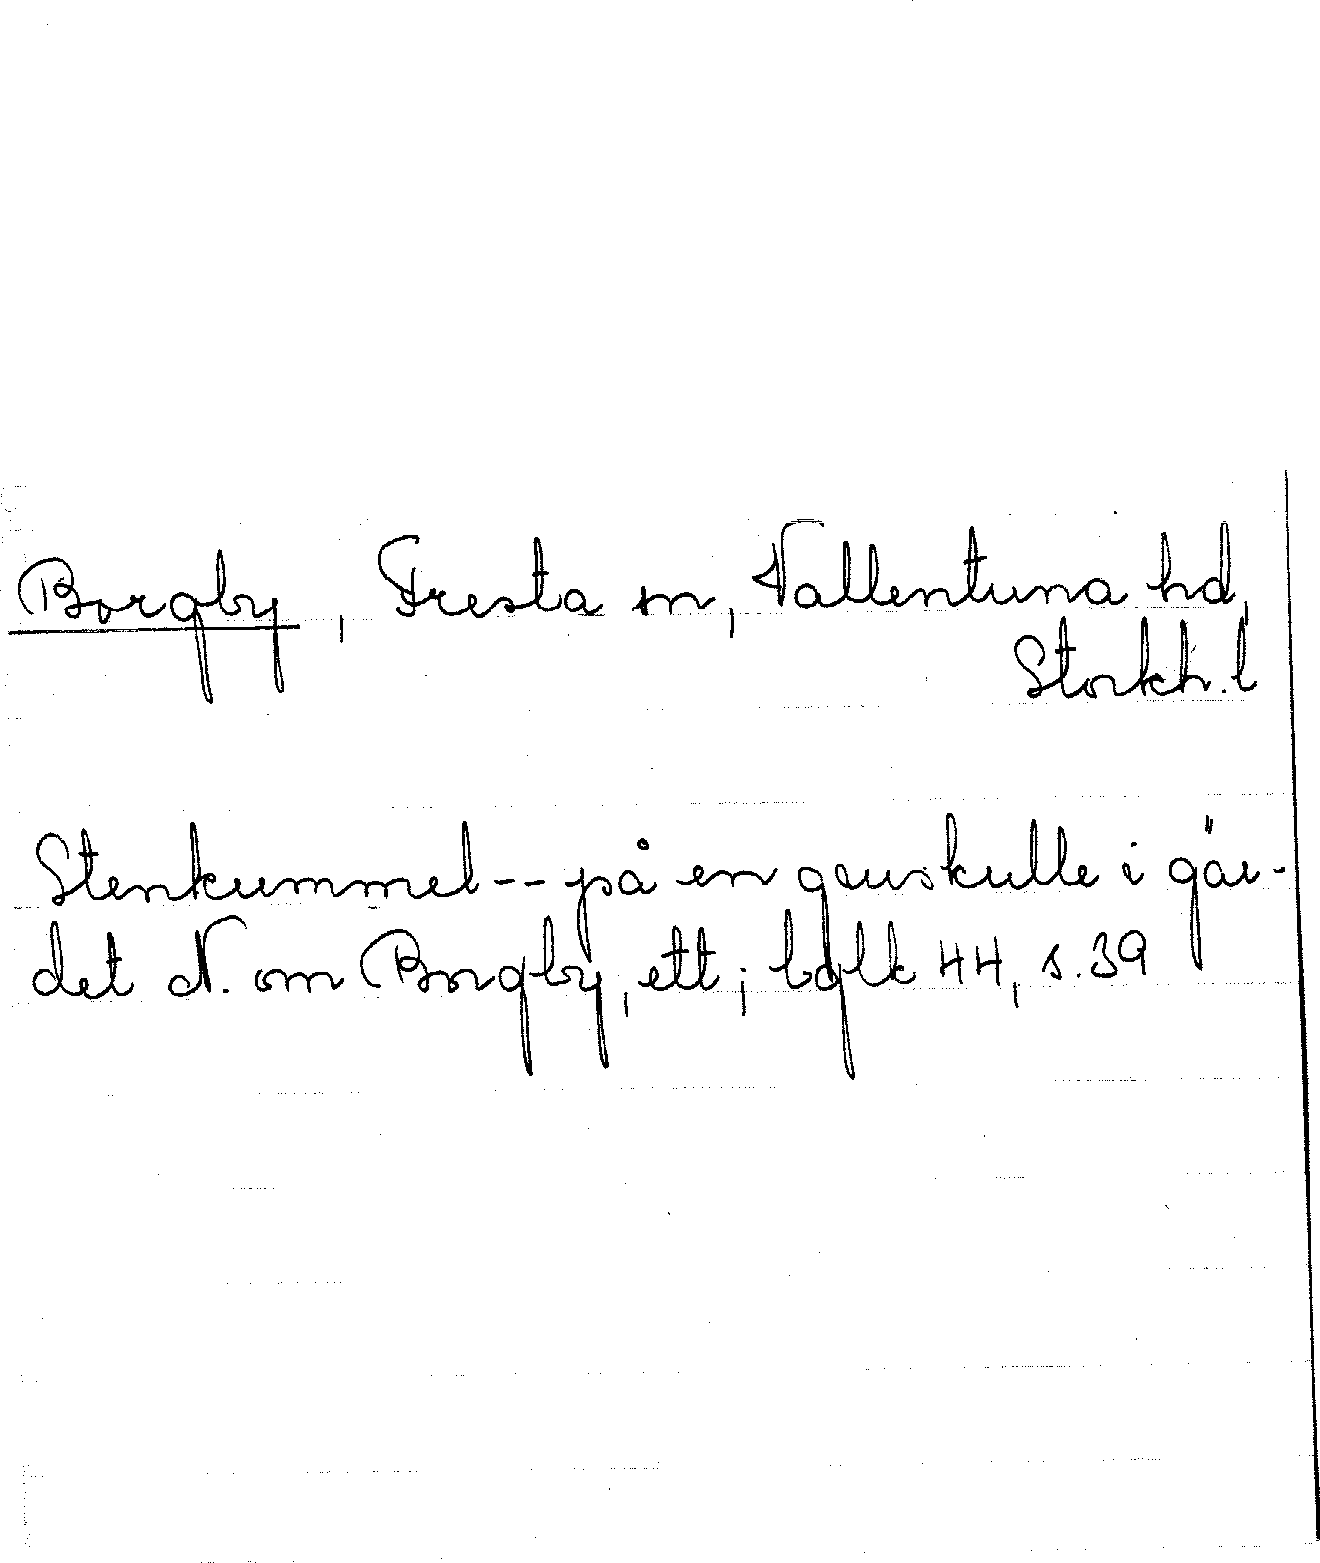 Borgby, Fresta sn, Vallentuna hd,
Stockh. l
Stenkummel -- på en gruskulle i gär-
det N. om Borgby, ett; bglk 44, s. 39